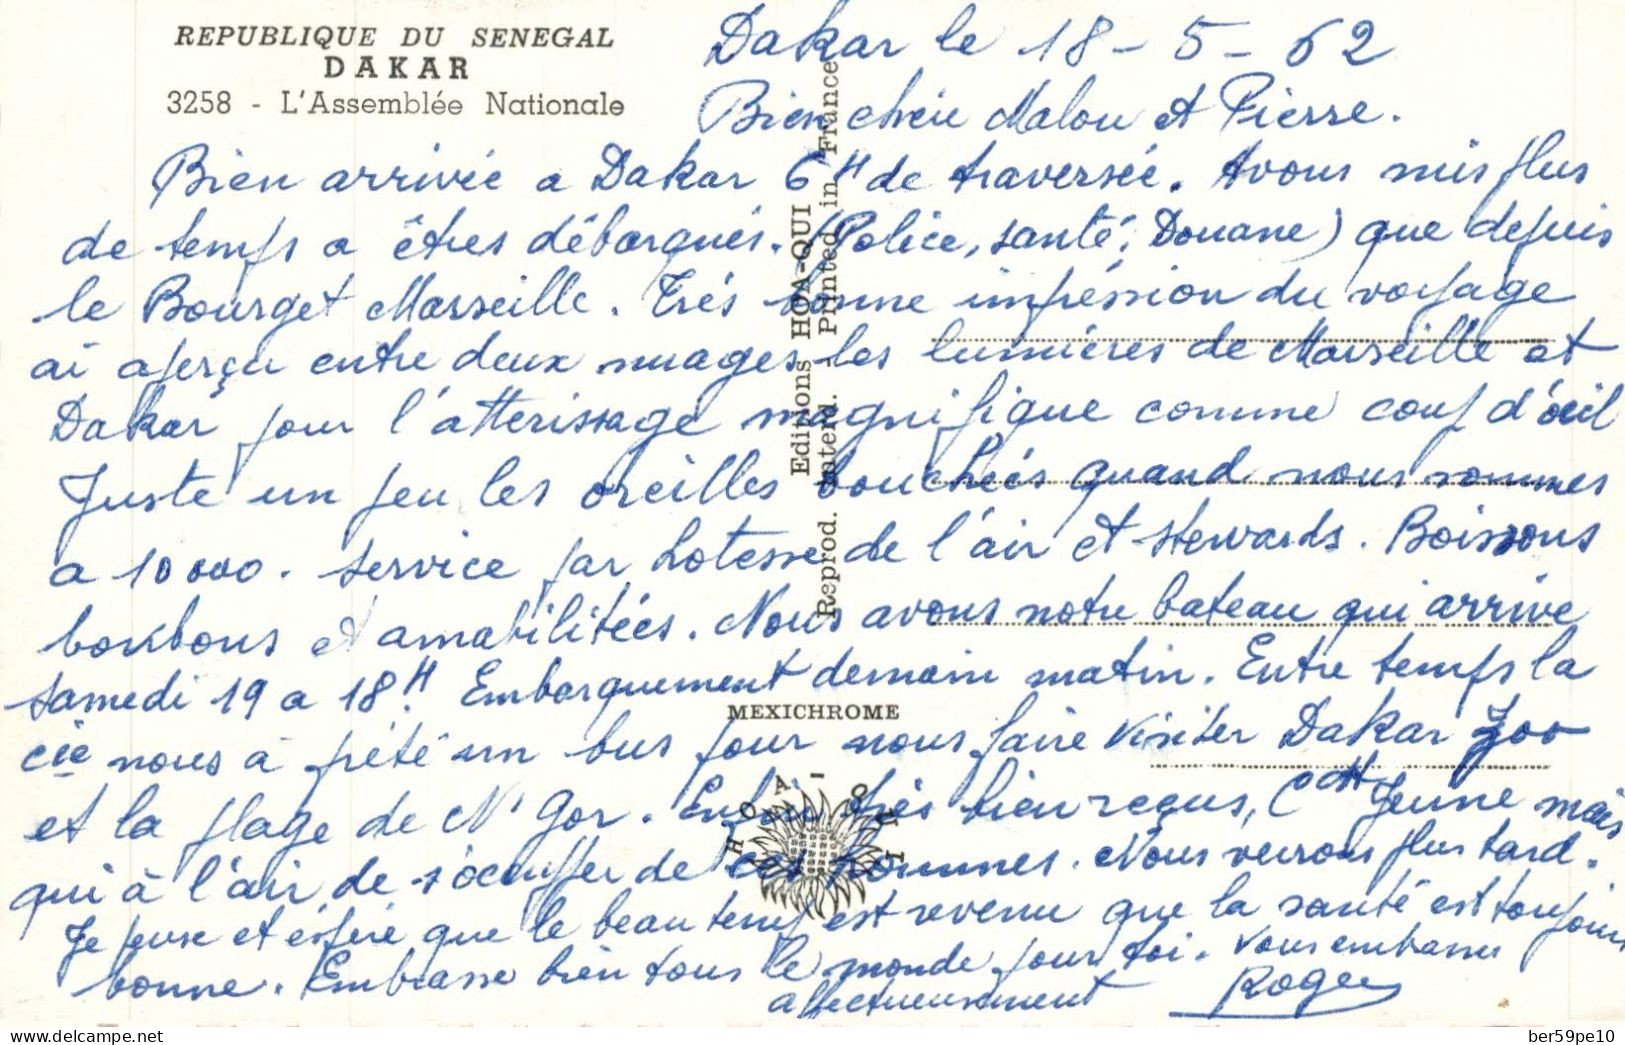 REPUBLIQUE DU SENEGAL
DAKAR
3258 - L'Assemblée Nationale
Dakar le 18-5-62
Bien chère Malou et Pierre.
Bien arrivée a Dakar 6H de traversée. Avons mis plus
de temps a êtres débarqués. (Police, santé, Douane) que depuis
le Bourget Marseille. Trés bonne impréssion du voyage
ai aperçu entre deux nuages les lumières de Marseille et
Dakar pour l'atterissage magnifique comme coup d'œil
Juste un peu les oreilles bouchées quand nous sommes
a 10000. Service par hotesse de l'air et stewards. Boissons
bonbons et amabilitées. Nous avons notre bateau qui arrive
samedi 19 a 18H. Embarquement demain matin. Entre temps la
cie nous à prété un bus pour nous faire visiter Dakar Zoo
et la plage de N'Gor. Enfin très bien reçus, Cdt Jeune mais
qui à l'air de s'occuper de ces hommes. Nous verrons plus tard.
Je pense et éspére que le beau temps est revenu que la santé est toujours
bonne. Embrasse bien tous le monde pour toi. Vous embrasse
affectueusement Roger
Editions HOA-QUI
Reprod. interd. - Printed in France
MEXICHROME
HOA-QUI
delcampe.net
ber59pe10